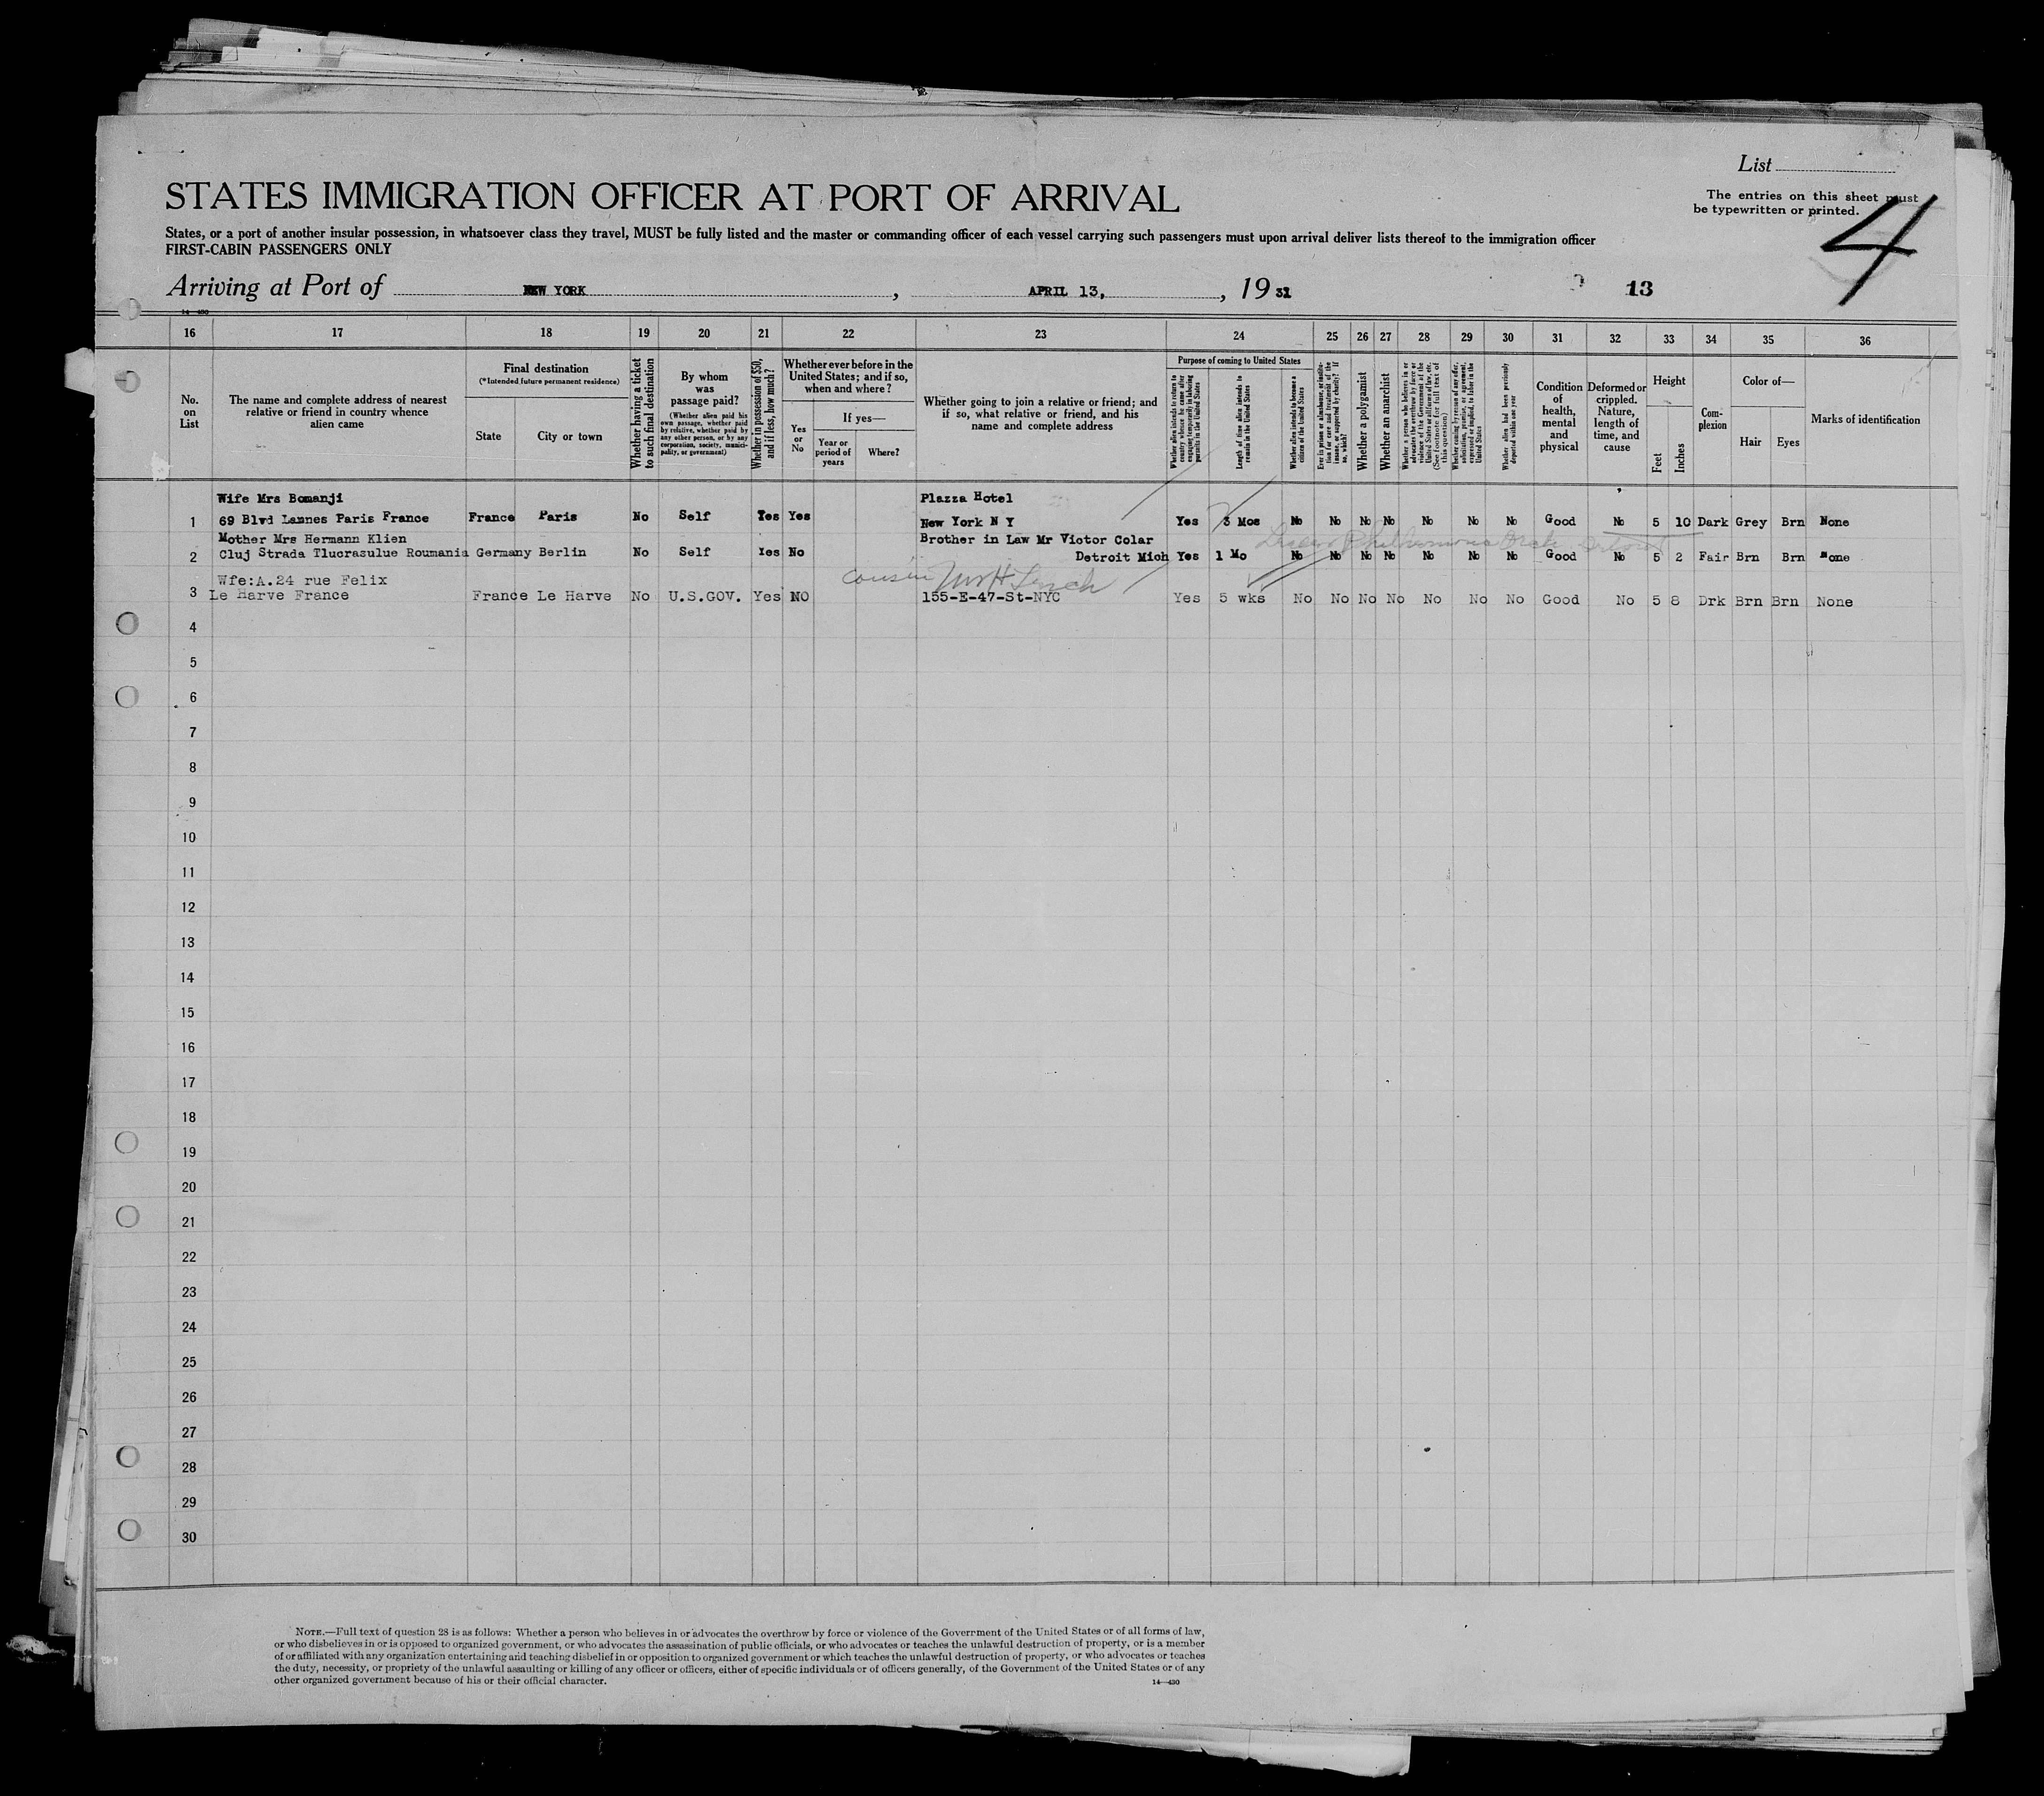 List
STATES IMMIGRATION OFFICER AT PORT OF ARRIVAL
The entries on this sheet must
be typewritten or printed.
4
States, or a port of another insular possession, in whatsoever class they travel, MUST be fully listed and the master or commanding officer of each vessel carrying such passengers must upon arrival deliver lists thereof to the immigration officer
FIRST-CABIN PASSENGERS ONLY
Arriving at Port of NEW YORK, APRIL 13, 1931 13
14-430
16 17 18 19 20 21 22 23 24 25 26 27 28 29 30 31 32 33 34 35 36
No.
on
List
The name and complete address of nearest
relative or friend in country whence
alien came
Final destination
(*Intended future permanent residence)
State
City or town
Whether having a ticket
to such final destination
By whom
was
passage paid?
(Whether alien paid his
own passage, whether paid
by relative, whether paid by
any other person, or by any
corporation, society, munici-
pality, or government)
Whether in possession of $50,
and if less, how much?
Whether ever before in the
United States; and if so,
when and where?
Yes
or
No
If yes—
Year or
period of
years
Where?
Whether going to join a relative or friend; and
if so, what relative or friend, and his
name and complete address
Purpose of coming to United States
Whether alien intends to return to
country whence he came after
engaging temporarily in laboring
pursuits in the United States
Length of time alien intends to
remain in the United States
Whether alien intends to become a
citizen of the United States
Ever in prison or almshouse, or institu-
tion for care and treatment of the
insane, or supported by charity? If
so, which?
Whether a polygamist
Whether an anarchist
Whether a person who believes in or
advocates the overthrow by force or
violence of the Government of the
United States or all forms of law, etc.
(See footnote for full text of
this question)
Whether coming by reason of any offer,
solicitation, promise, or agreement,
expressed or implied, to labor in the
United States
Whether alien had been previously
deported within one year
Condition
of
health,
mental
and
physical
Deformed or
crippled.
Nature,
length of
time, and
cause
Height
Feet
Inches
Com-
plexion
Color of—
Hair
Eyes
Marks of identification
Wife Mrs Bomanji Plazza Hotel
1 69 Blvd Lannes Paris France France Paris No Self Yes Yes New York N Y Yes 3 Mos No No No No No No No Good No 5 10 Dark Grey Brn None
Mother Mrs Hermann Klien Brother in Law Mr Victor Colar
2 Cluj Strada Tlucrasulue Roumania Germany Berlin No Self Yes No Detroit Mich Yes 1 Mo No No No No No No No Good No 5 2 Fair Brn Brn None
Wfe:A.24 rue Felix cousin
3 Le Harve France France Le Harve No U.S.GOV. Yes NO 155-E-47-St-NYC Yes 5 wks No No No No No No No Good No 5 8 Drk Brn Brn None
4
5
6
7
8
9
10
11
12
13
14
15
16
17
18
19
20
21
22
23
24
25
26
27
28
29
30
NOTE.—Full text of question 28 is as follows: Whether a person who believes in or advocates the overthrow by force or violence of the Government of the United States or of all forms of law,
or who disbelieves in or is opposed to organized government, or who advocates the assassination of public officials, or who advocates or teaches the unlawful destruction of property, or is a member
of or affiliated with any organization entertaining and teaching disbelief in or opposition to organized government or which teaches the unlawful destruction of property, or who advocates or teaches
the duty, necessity, or propriety of the unlawful assaulting or killing of any officer or officers, either of specific individuals or of officers generally, of the Government of the United States or of any
other organized government because of his or their official character.
14-430